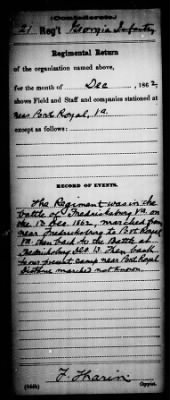 (Confederate.)
21 Reg't Georgia Infantry
Regimental Return
of the organization named above,
for the month of Dec, 1862,
shows Field and Staff and companies stationed at
near Port Royal, Va.
except as follows:
RECORD OF EVENTS.
The Regiment was in the
battle of Fredricksburg Va. on
the 13 Dec. 1862, marched from
near Fredricksburg to Port Royal
Va. then back to the Battle at
Fredricksburg Dec 13. Then back
to our present camp near Port Royal
Distance marched not known.
F. Tharin
Copyist.